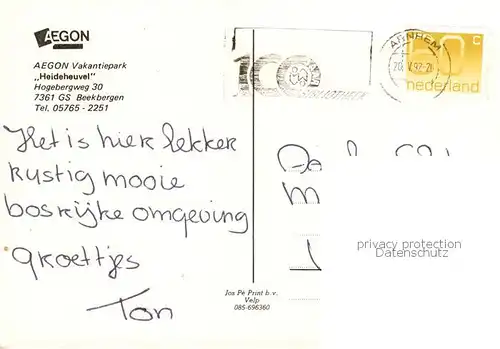 AEGON
AEGON Vakantiepark
„Heideheuvel"
Hogebergweg 30
7361 GS Beekbergen
Tel. 05765 - 2251
Het is hier lekker
rustig mooie
bosrijke omgeving
groettjes
Ton
Jos Pé Print b.v.
Velp
085-696360
100
ARNHEM
60 c
nederland
privacy protection
Datenschutz